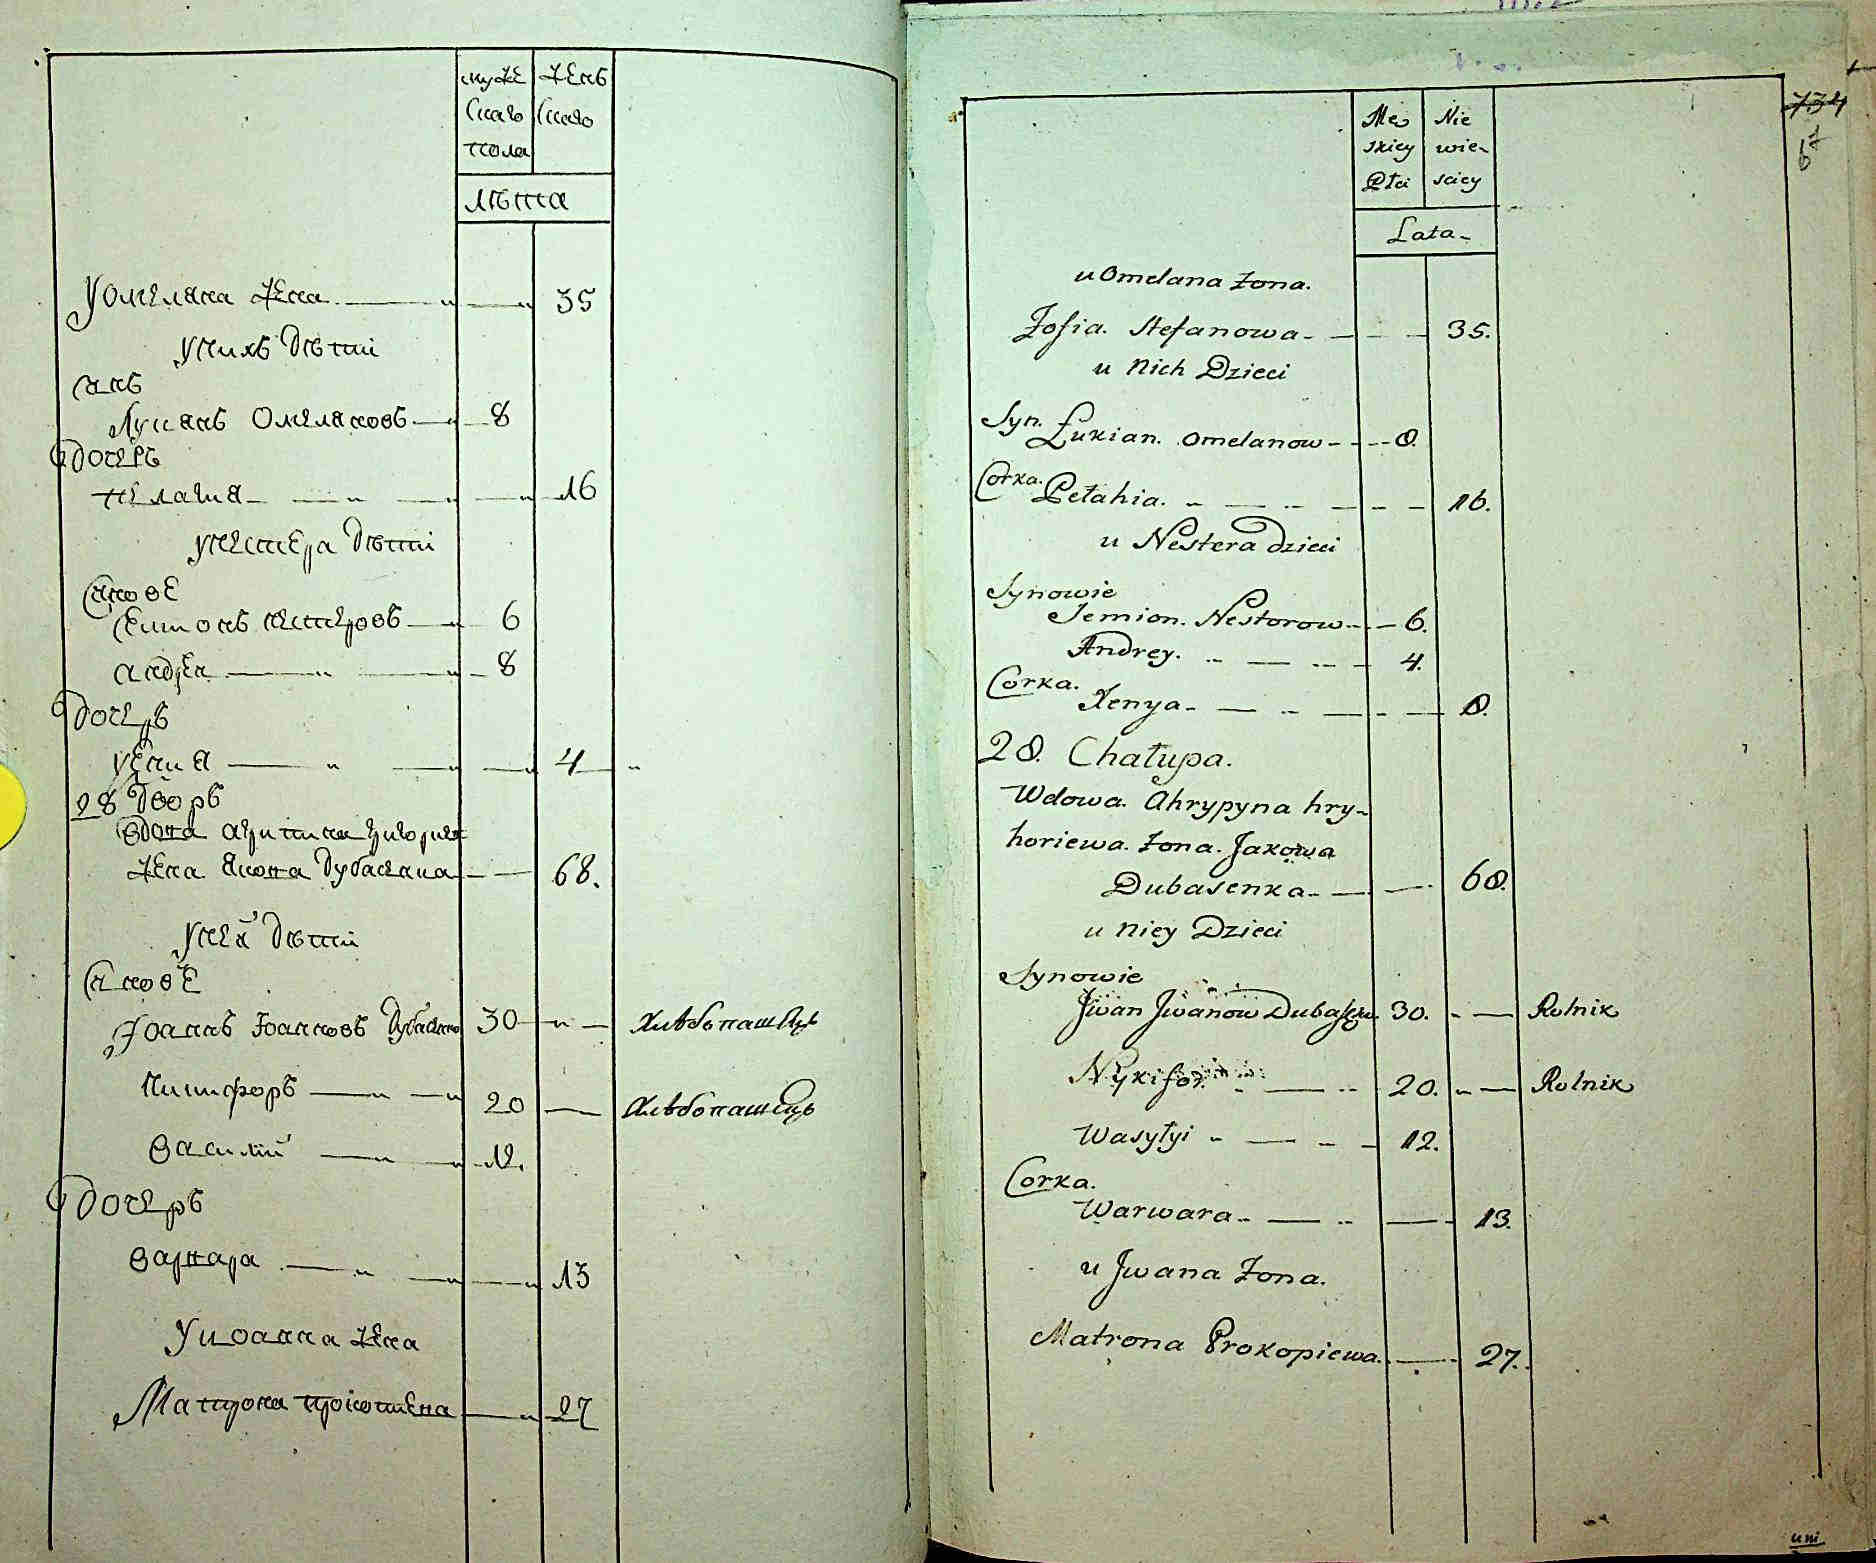 мужеского пола
женского
лѣта
У Омеляна жена 35
у нихъ дѣти
сынъ
Лукянъ Омеляновъ 8
дочерь
Пелагия 16
у Нестера дѣти
сынове
Симонъ Нестеровъ 6
Андрей 8
дочерь
Ксения 4
28 дворъ
вдова Агрипина Григориева
жена Якова Дубасенка 68.
у ней дѣти
сынове
Іоаннъ Іоанновъ Дубасенко 30 Хлѣбопашецъ
Никифоръ 20 Хлѣбопашецъ
Василий 12.
дочерь
Варвара 13
У Иоанна жена
Матрона Прокопиева 27
Męskiey Płci
Niewiesciey
734
67
Lata
u Omelana Żona.
Zofia. Stefanowa 35.
u Nich Dzieci
Syn.
Łukian. Omelanow 8.
Corka. Pełahia. 16.
u Nestera dzieci
Synowie
Semion. Nestorow 6.
Andrey. 4.
Corka.
Xenya 8.
28. Chałupa.
Wdowa. Ahrypyna hry-
horiewa. Żona. Jakowa
Dubasenka 68.
u Niey Dzieci
Synowie
Jwan Jwanow Dubasenko 30. Rolnik
Nykifor. 20. Rolnik
Wasyłyi 12.
Corka.
Warwara 13.
u Jwana Żona.
Matrona Prokopiewa. 27.